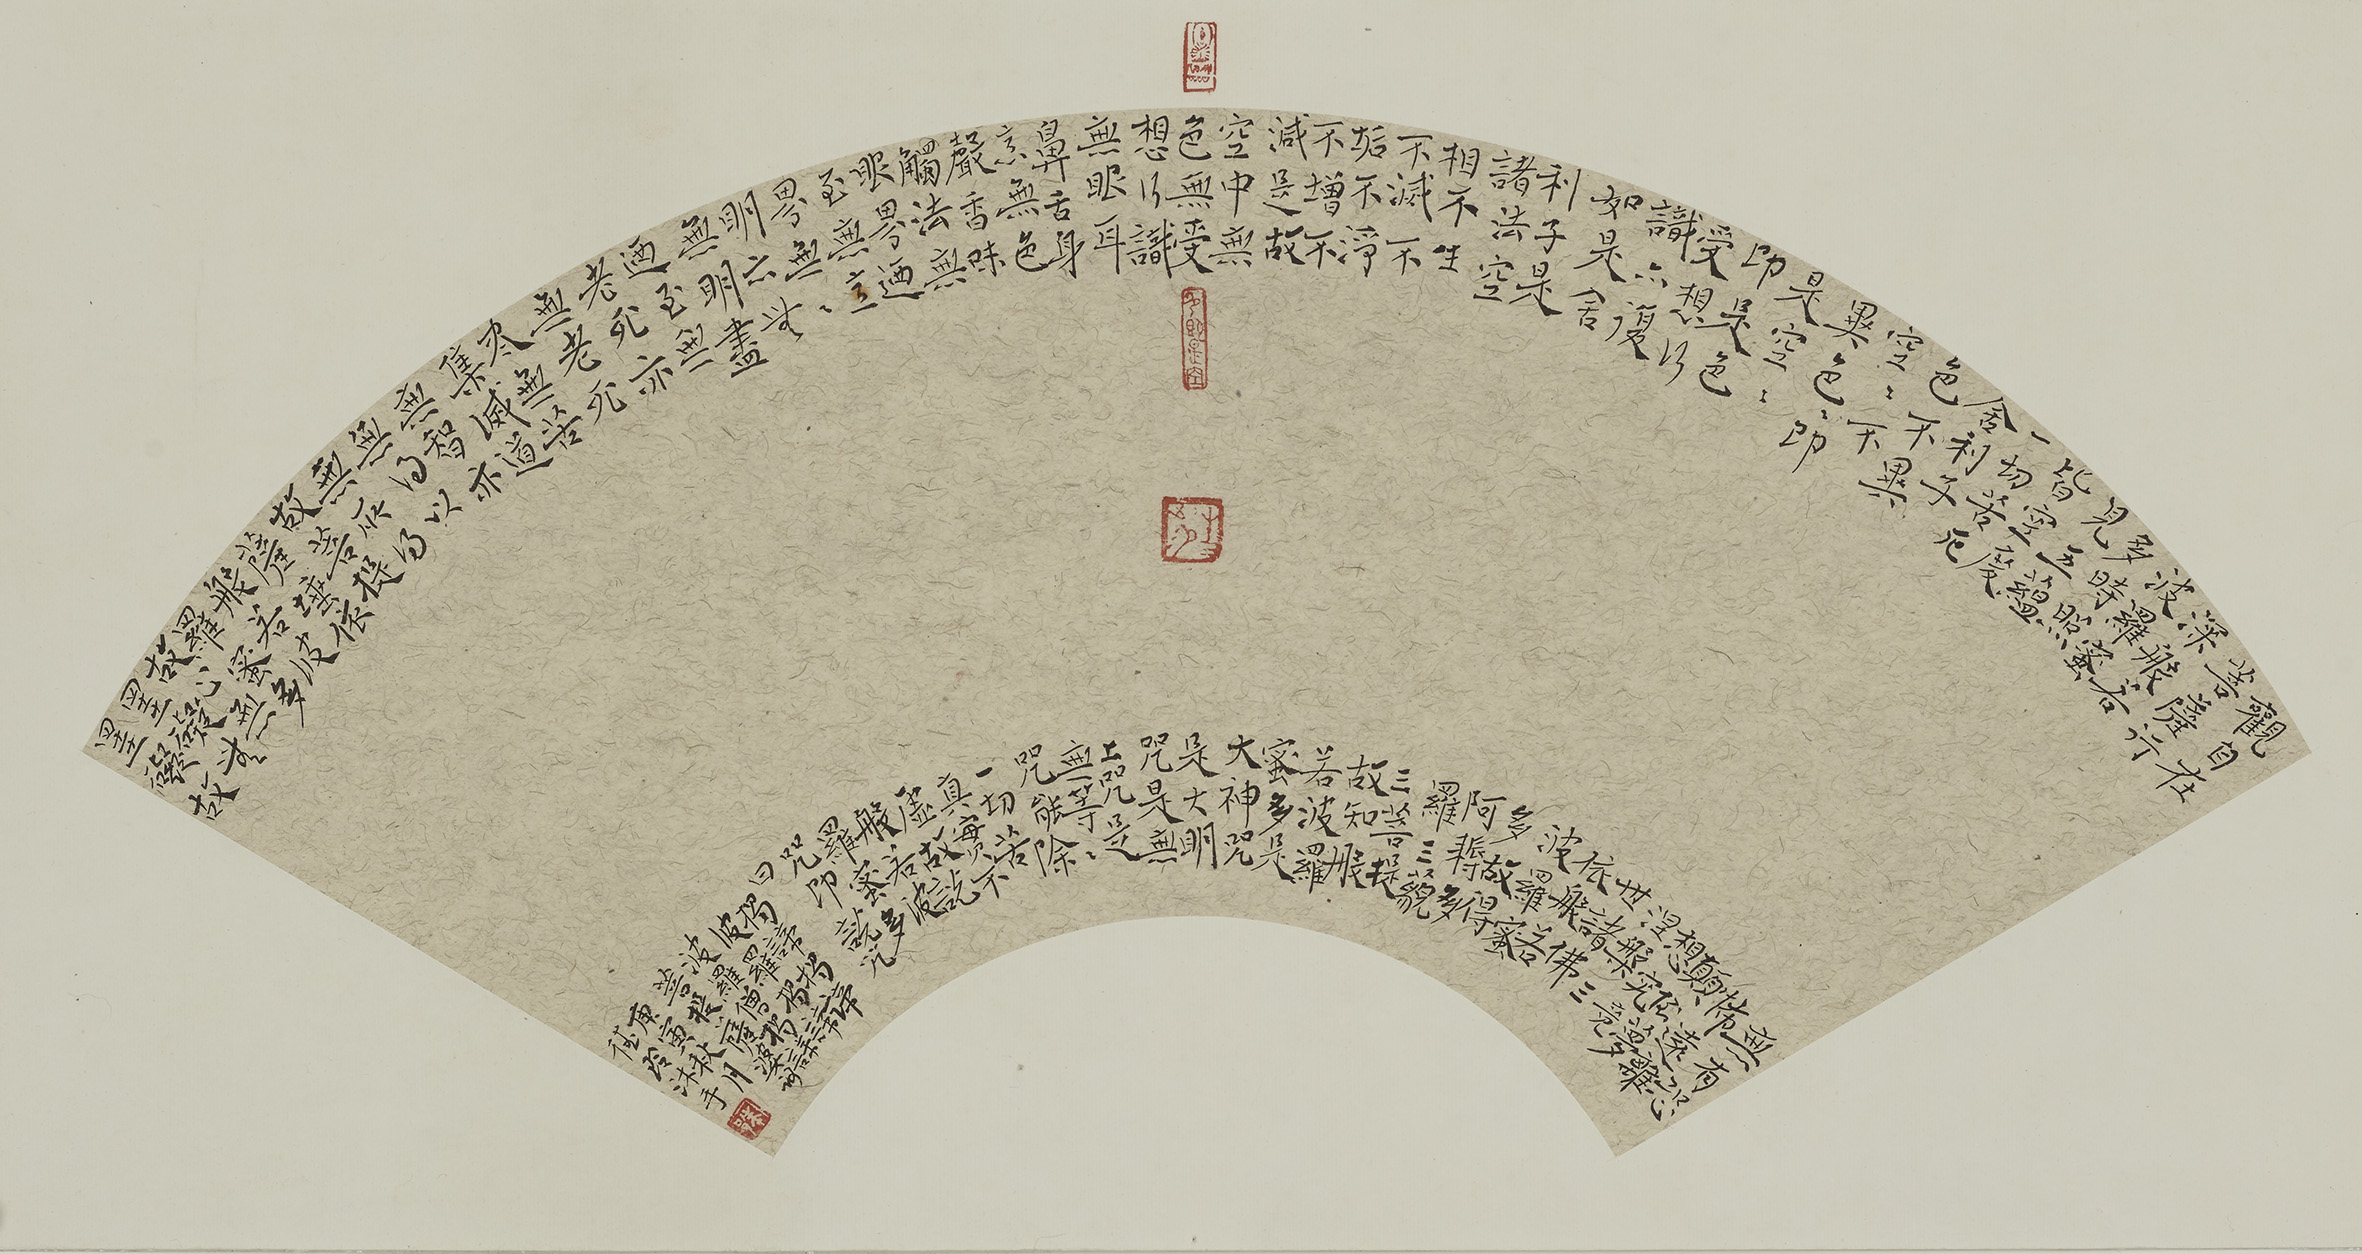 觀自在
菩薩行
深般若
波羅蜜
多時照
見五蘊
皆空度
一切苦厄
舍利子
色不異
空〻不
異色〻即
是空〻
即是色
受想行
識亦復
如是舍
利子是
諸法空
相不生
不滅不
垢不淨
不增不
減是故
空中無
色無受
想行識
無眼耳
鼻舌身
意無色
聲香味
觸法無
眼界廼
至無意
界無〻
明亦無
無明盡
廼至無
老死亦
無老死
尽無苦
集滅道
無智亦
無得以
無所得
故菩提
薩埵依
般若波
羅蜜多
故心無
罣礙無
罣礙故
無有恐
怖遠離
顛倒夢
想究竟
涅槃三
世諸佛
依般若
波羅蜜
多故得
阿耨多
羅三藐
三菩提
故知般
若波羅
蜜多是
大神咒
是大明
咒是無
上咒是
無等〻
咒能除
一切苦
真實不
虛故說
般若波
羅蜜多
咒即說咒
曰
揭諦揭諦
波羅揭諦
波羅僧揭諦
菩提薩婆訶
庚寅秋月
沐手